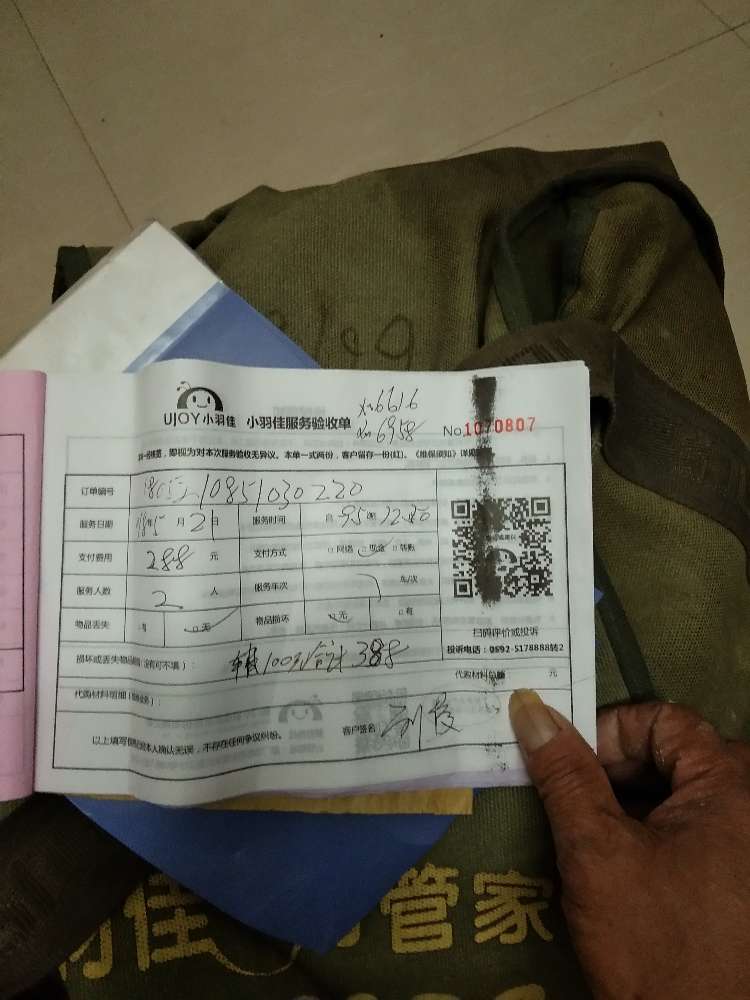 UJOY小羽佳 小羽佳服务验收单
6616
6958
No.1070807
即视为对本次服务验收无异议。本单一式两份，客户留存一份(红)。《维保须知》详见
订单编号 10851030220
服务日期 年5月21日 服务时间
支付费用 288元 支付方式 □网络 □现金 □转账
服务人数 2人 服务车次 车/次
物品丢失 □有 □无 物品损坏 □无 □有
扫码评价或投诉
投诉电话：0592-5178888转2
损坏或丢失物品 (没有可不填)： 100 合计388
代购材料总额 元
代购材料明细
以上填写 本人确认无误，不存在任何争议纠纷。 客户签名
佳 管家